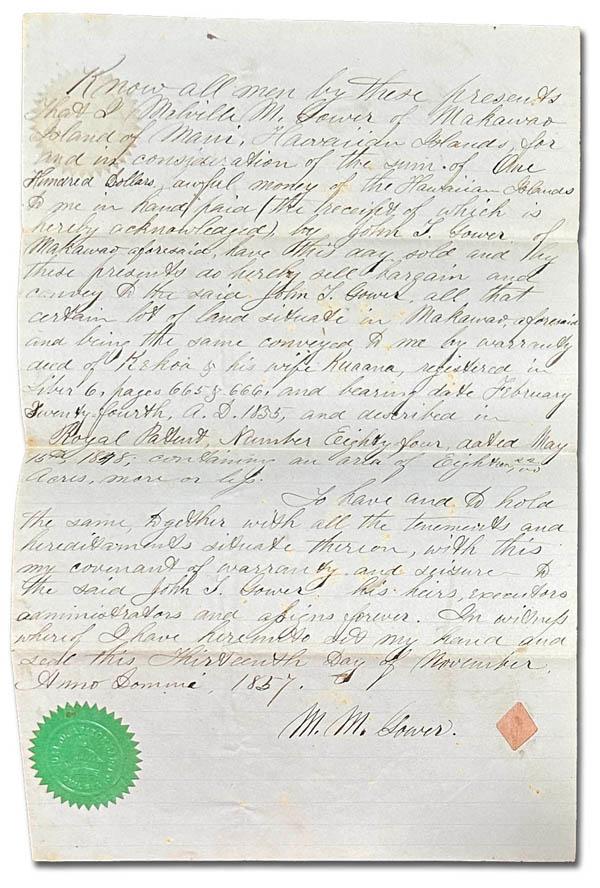 Know all men by these presents
that I Melville M. Gower of Makawao
Island of Maui, Hawaiian Islands, for
and in consideration of the sum of One
Hundred Dollars, awful money of the Hawaiian Islands
to me in hand paid (the receipt of which is
hereby acknowledged) by John T. Gower of
Makawao aforesaid, have this day sold and by
these presents do hereby sell bargain and
convey to the said John T. Gower, all that
certain lot of land situate in Makawao, aforesaid
and being the same conveyed to me by warranty
deed of Kekoa & his wife Kuaana, registered in
Liber 6, pages 665 & 666, and bearing date February
Twenty-fourth, A. D. 1855, and described in
Royal Patent, Number Eighty four, dated May
1848, containing an area of
Acres, more or less.
To have and to hold
the same, together with all the tenements and
hereditaments situate thereon, with this
my covenant of warranty and seisure to
the said John T. Gower his heirs, executors
administrators and assigns forever. In witness
whereof I have hereunto set my hand and
seal this Thirteenth Day of November,
Anno Domini, 1857.
M. M. Gower.